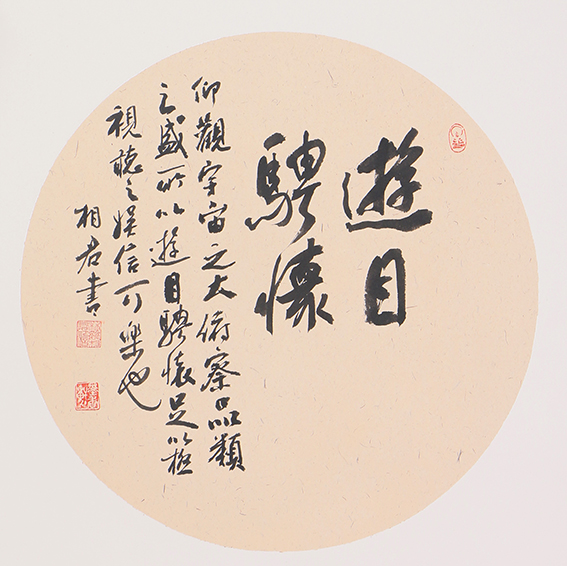 遊目
騁懷
仰觀宇宙之大俯察品類
之盛所以遊目騁懷足以極
視聽之娱信可樂也
相君書